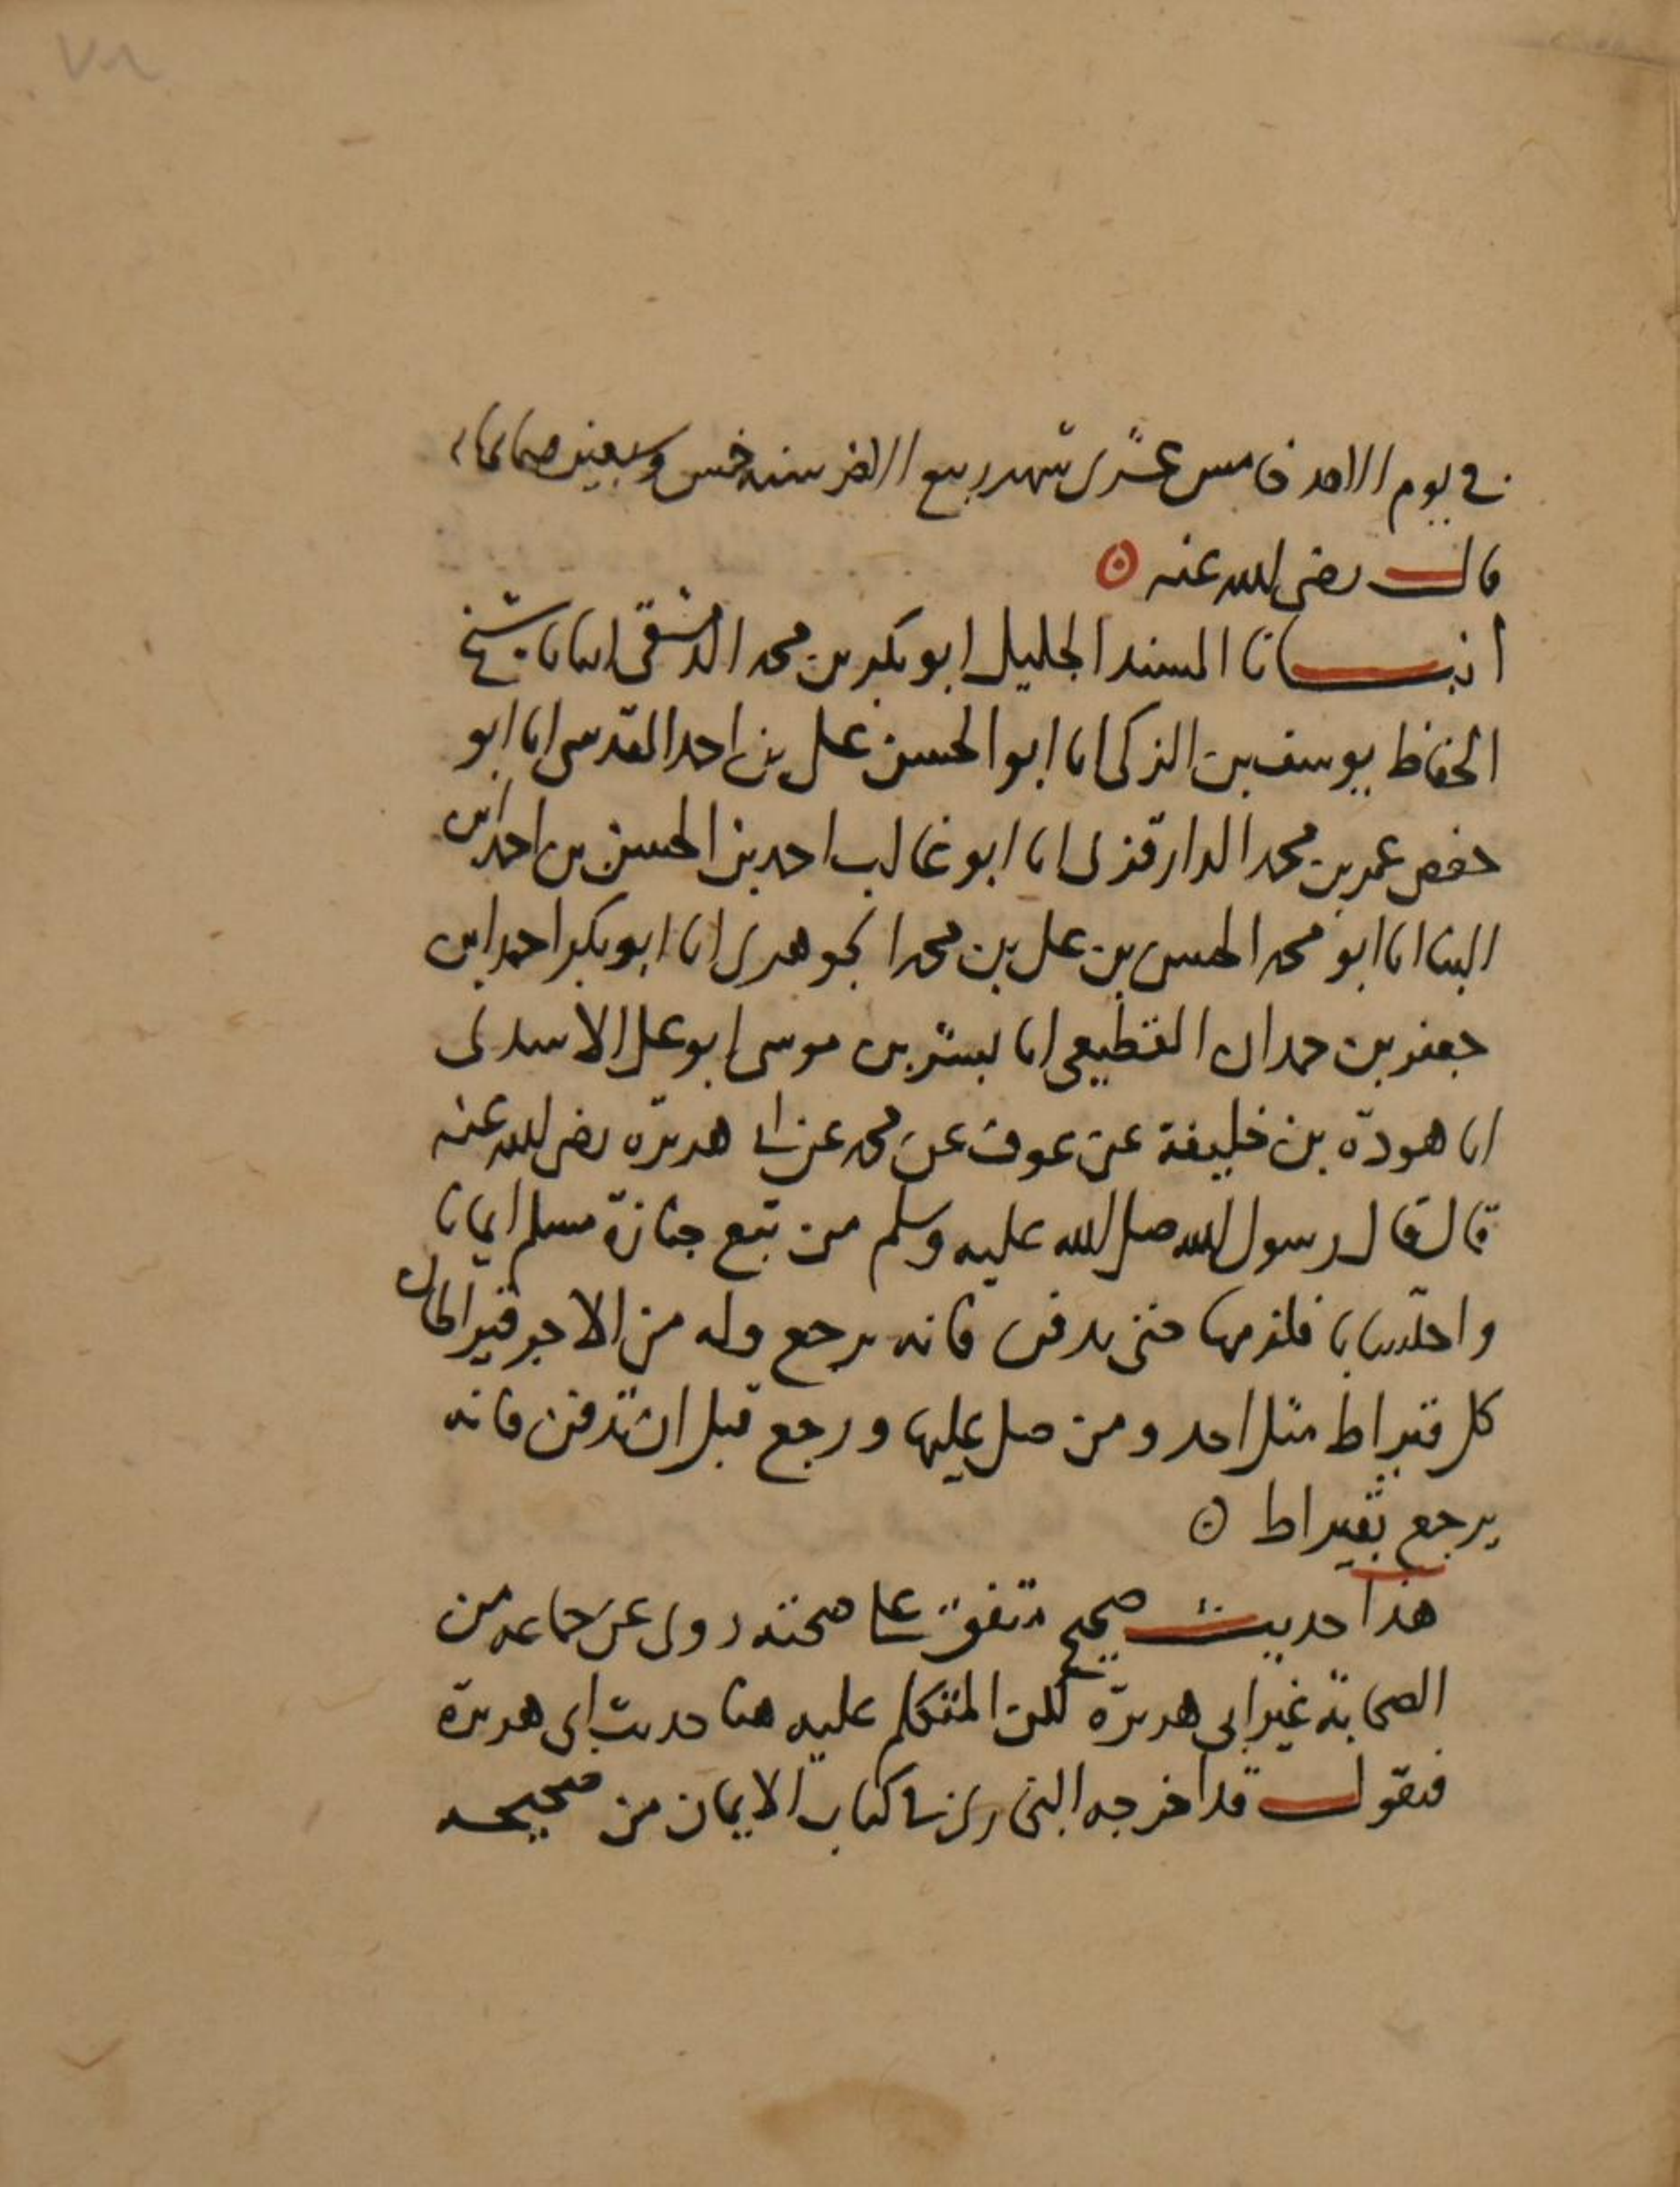 في يوم الاحد خامس عشرى شهر ربيع الاخر سنه خمس وسبعين
قال رضى الله عنه
انبانا المسند الجليل ابو بكر بن محمد الدمشقى انبانا شيخ
الحفاظ يوسف بن الزكى انا ابو الحسن على بن احمد المقدسى انا ابو
حفص عمر بن محمد الدارقزى انا ابو غالب احمد بن الحسن بن احمد ابن
البنا انا ابو محمد الحسن بن على بن محمد الجوهرى انا ابو بكر احمد ابن
جعفر بن حمدان القطيعى انا بشر بن موسى ابو على الاسدى
انا هوذة بن خليفة عن عوف عن محمد عن ابى هريرة رضى الله عنه
قال قال رسول الله صلى الله عليه وسلم من تبع جنازة مسلم ايمانا
واحتسابا فلزمها حتى يدفن فانه يرجع وله من الاجر قيراطان
كل قيراط مثل احد ومن صلى عليها ورجع قبل ان تدفن فانه
يرجع بقيراط
هذا حديث صحيح متفق على صحته روى عن جماعه من
الصحابة غير ابى هريرة لكن المتكلم عليه هنا حديث ابى هريرة
فنقول قد اخرجه البخارى فى كتاب الايمان من صحيحه